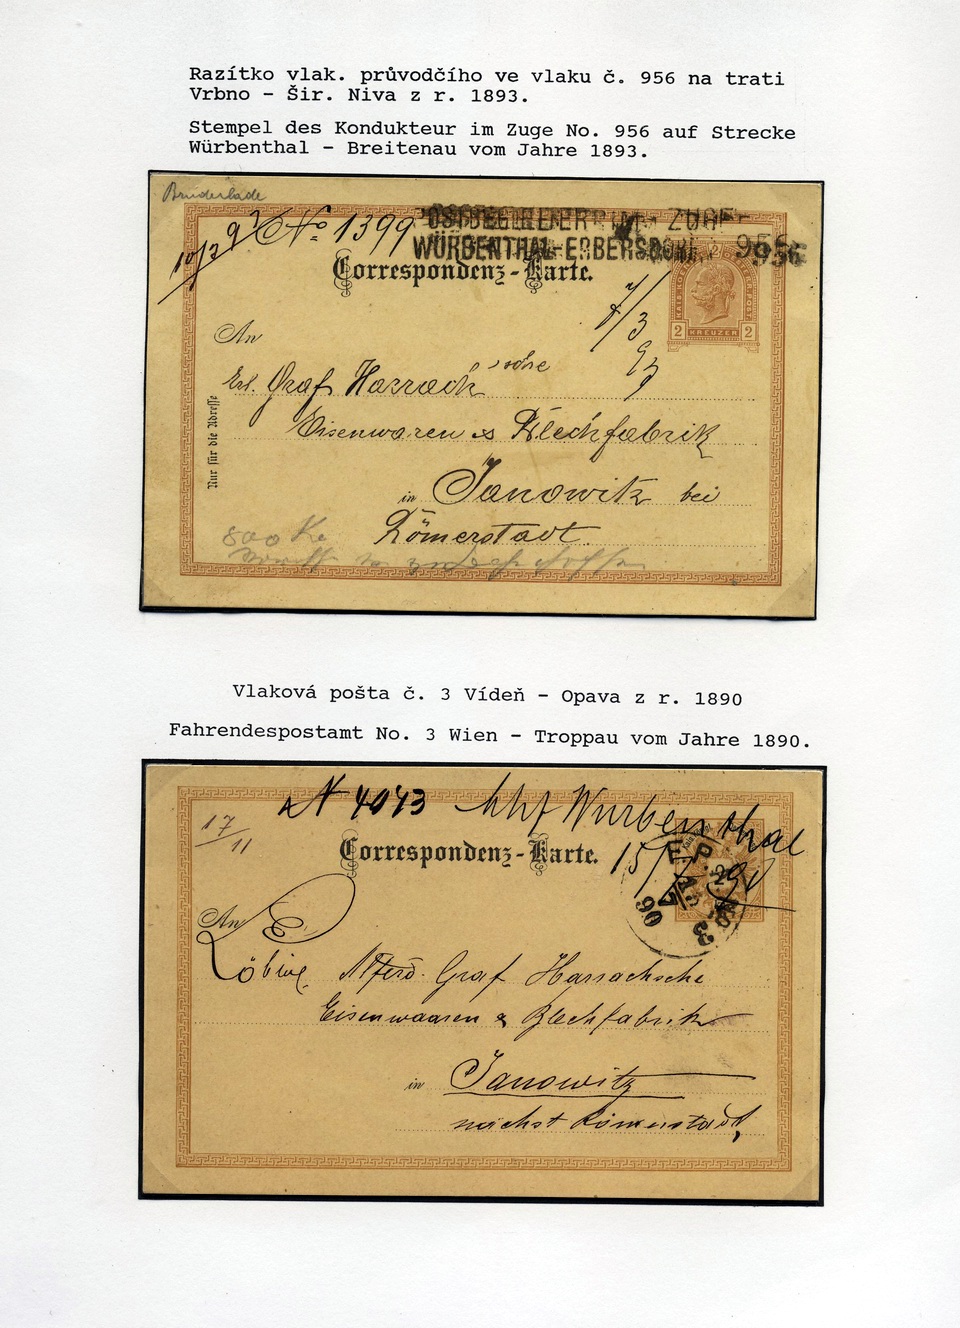 Razítko vlak. průvodčího ve vlaku č. 956 na trati
Vrbno - Šir. Niva z r. 1893.
Stempel des Kondukteur im Zuge No. 956 auf Strecke
Würbenthal - Breitenau vom Jahre 1893.
Bruderlade
10/3 93 No 1399
POSTBEGLEITER IM ZUGE
WÜRBENTHAL-ERBERSDORF 956
Correspondenz-Karte.
2 KREUZER 2
7/3 93
An
Graf Harrach'sche
Eisenwaren & Blechfabrik
in Janowitz bei
Römerstadt.
Nur für die Adresse
Vlaková pošta č. 3 Vídeň - Opava z r. 1890
Fahrendespostamt No. 3 Wien - Troppau vom Jahre 1890.
N 4043 Würbenthal
17/11
15/ 90
Correspondenz-Karte.
F.P. 3 90
An
Löbliche Graf Harrachsche
Eisenwaaren & Blechfabrik
in Janowitz
nächst Römerstadt,